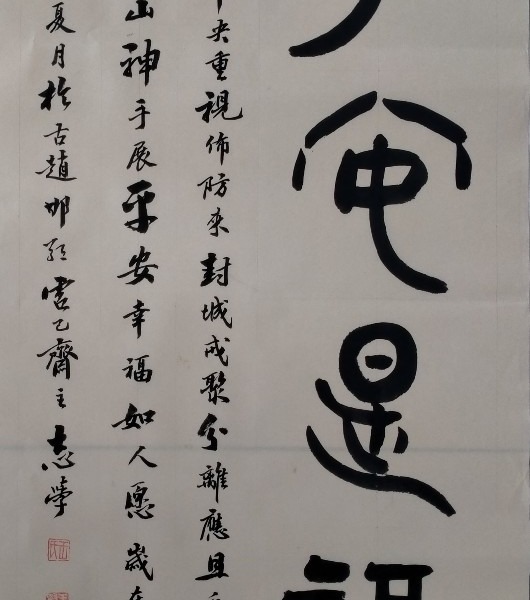 安是
央重視佈防來封城戒聚分離應且
山神手展平安幸福如人愿歲在
夏月於古趙邯鄲乙齋主志學